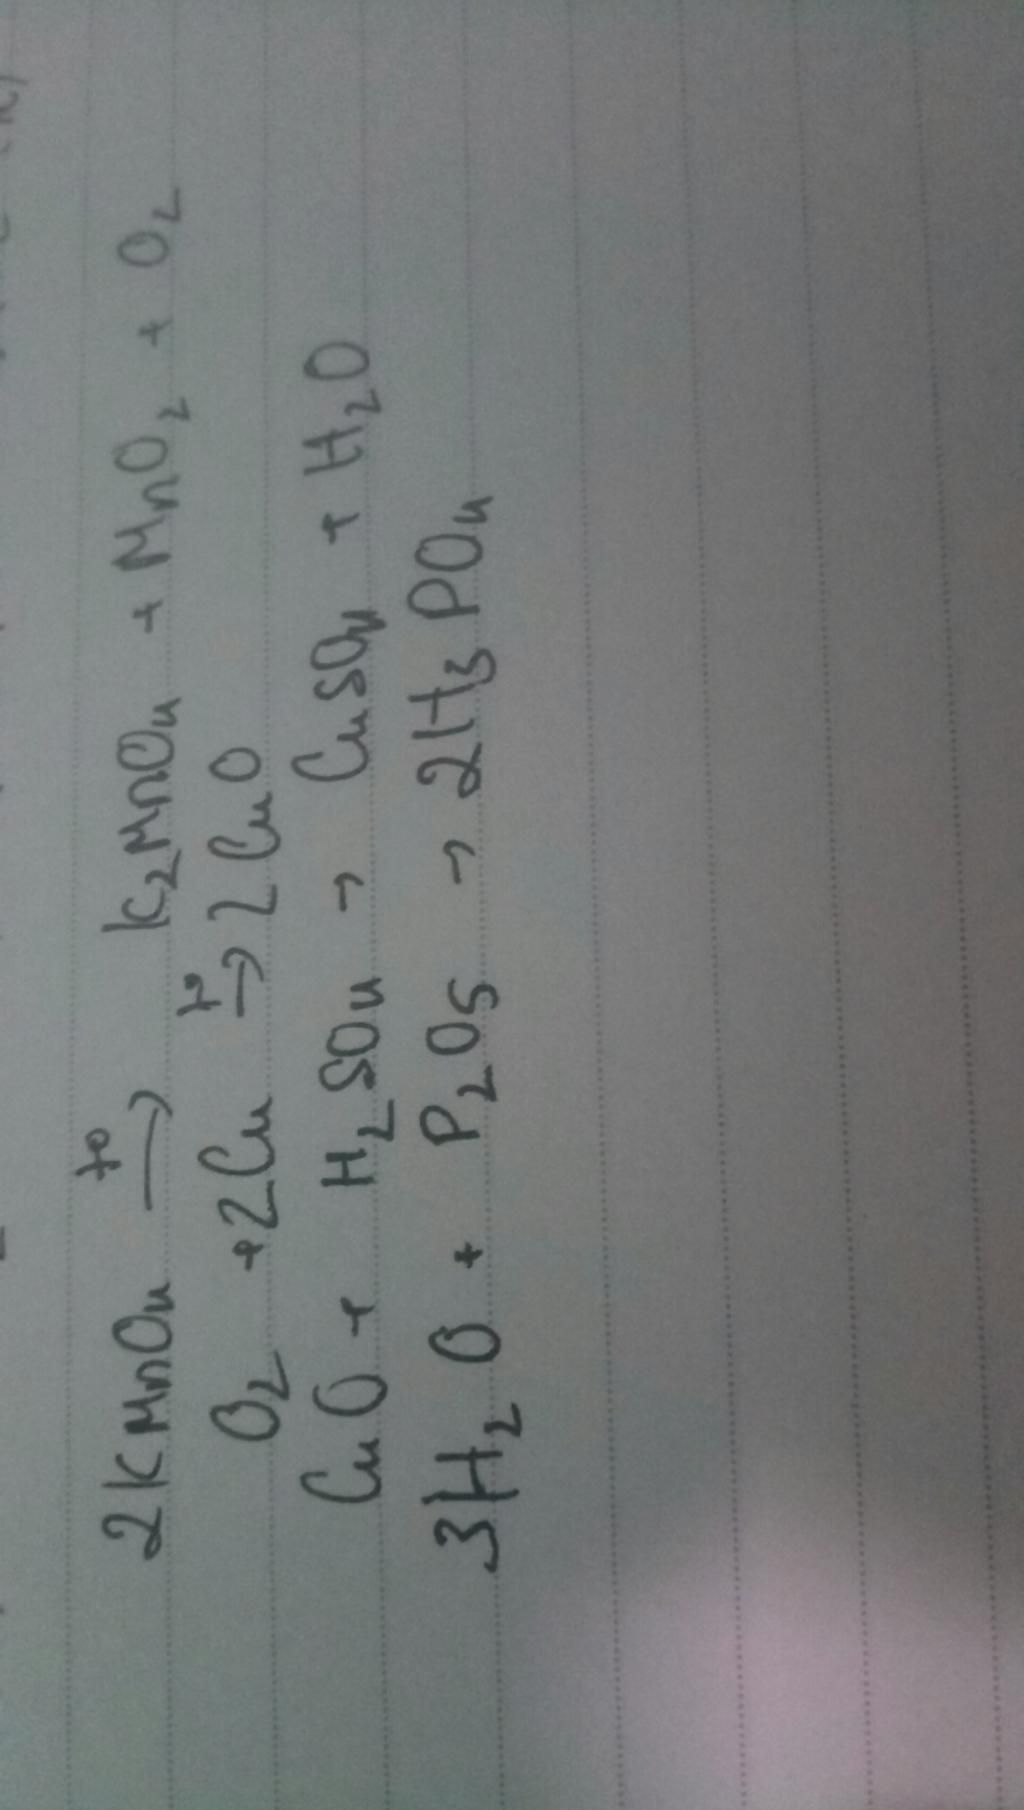 2KMnO4 t°→ K2MnO4 + MnO2 + O2
O2 + 2Cu t°→ 2CuO
CuO + H2SO4 → CuSO4 + H2O
3H2O + P2O5 → 2H3PO4